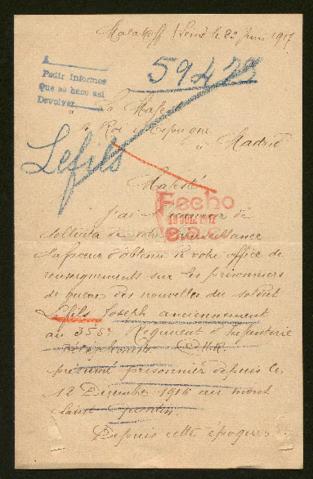 Malakoff (Seine) le 22 Juin 1917
A
Pedir informes
Que se hace asi
Devolver
59422
Sa Majesté
le Roi d'Espagne
à Madrid
Lefils
Majesté
Fecho
J'ai l'honneur de
solliciter de votre bienveillance
la faveur d'obtenir de votre office de
renseignements sur les prisonniers
de guerre des nouvelles du soldat
Lefils Joseph anciennement
au 355e Régiment d'Infanterie
présumé prisonnier depuis le
12 Décembre 1916 au mont
Saint Quentin
Depuis cette époque